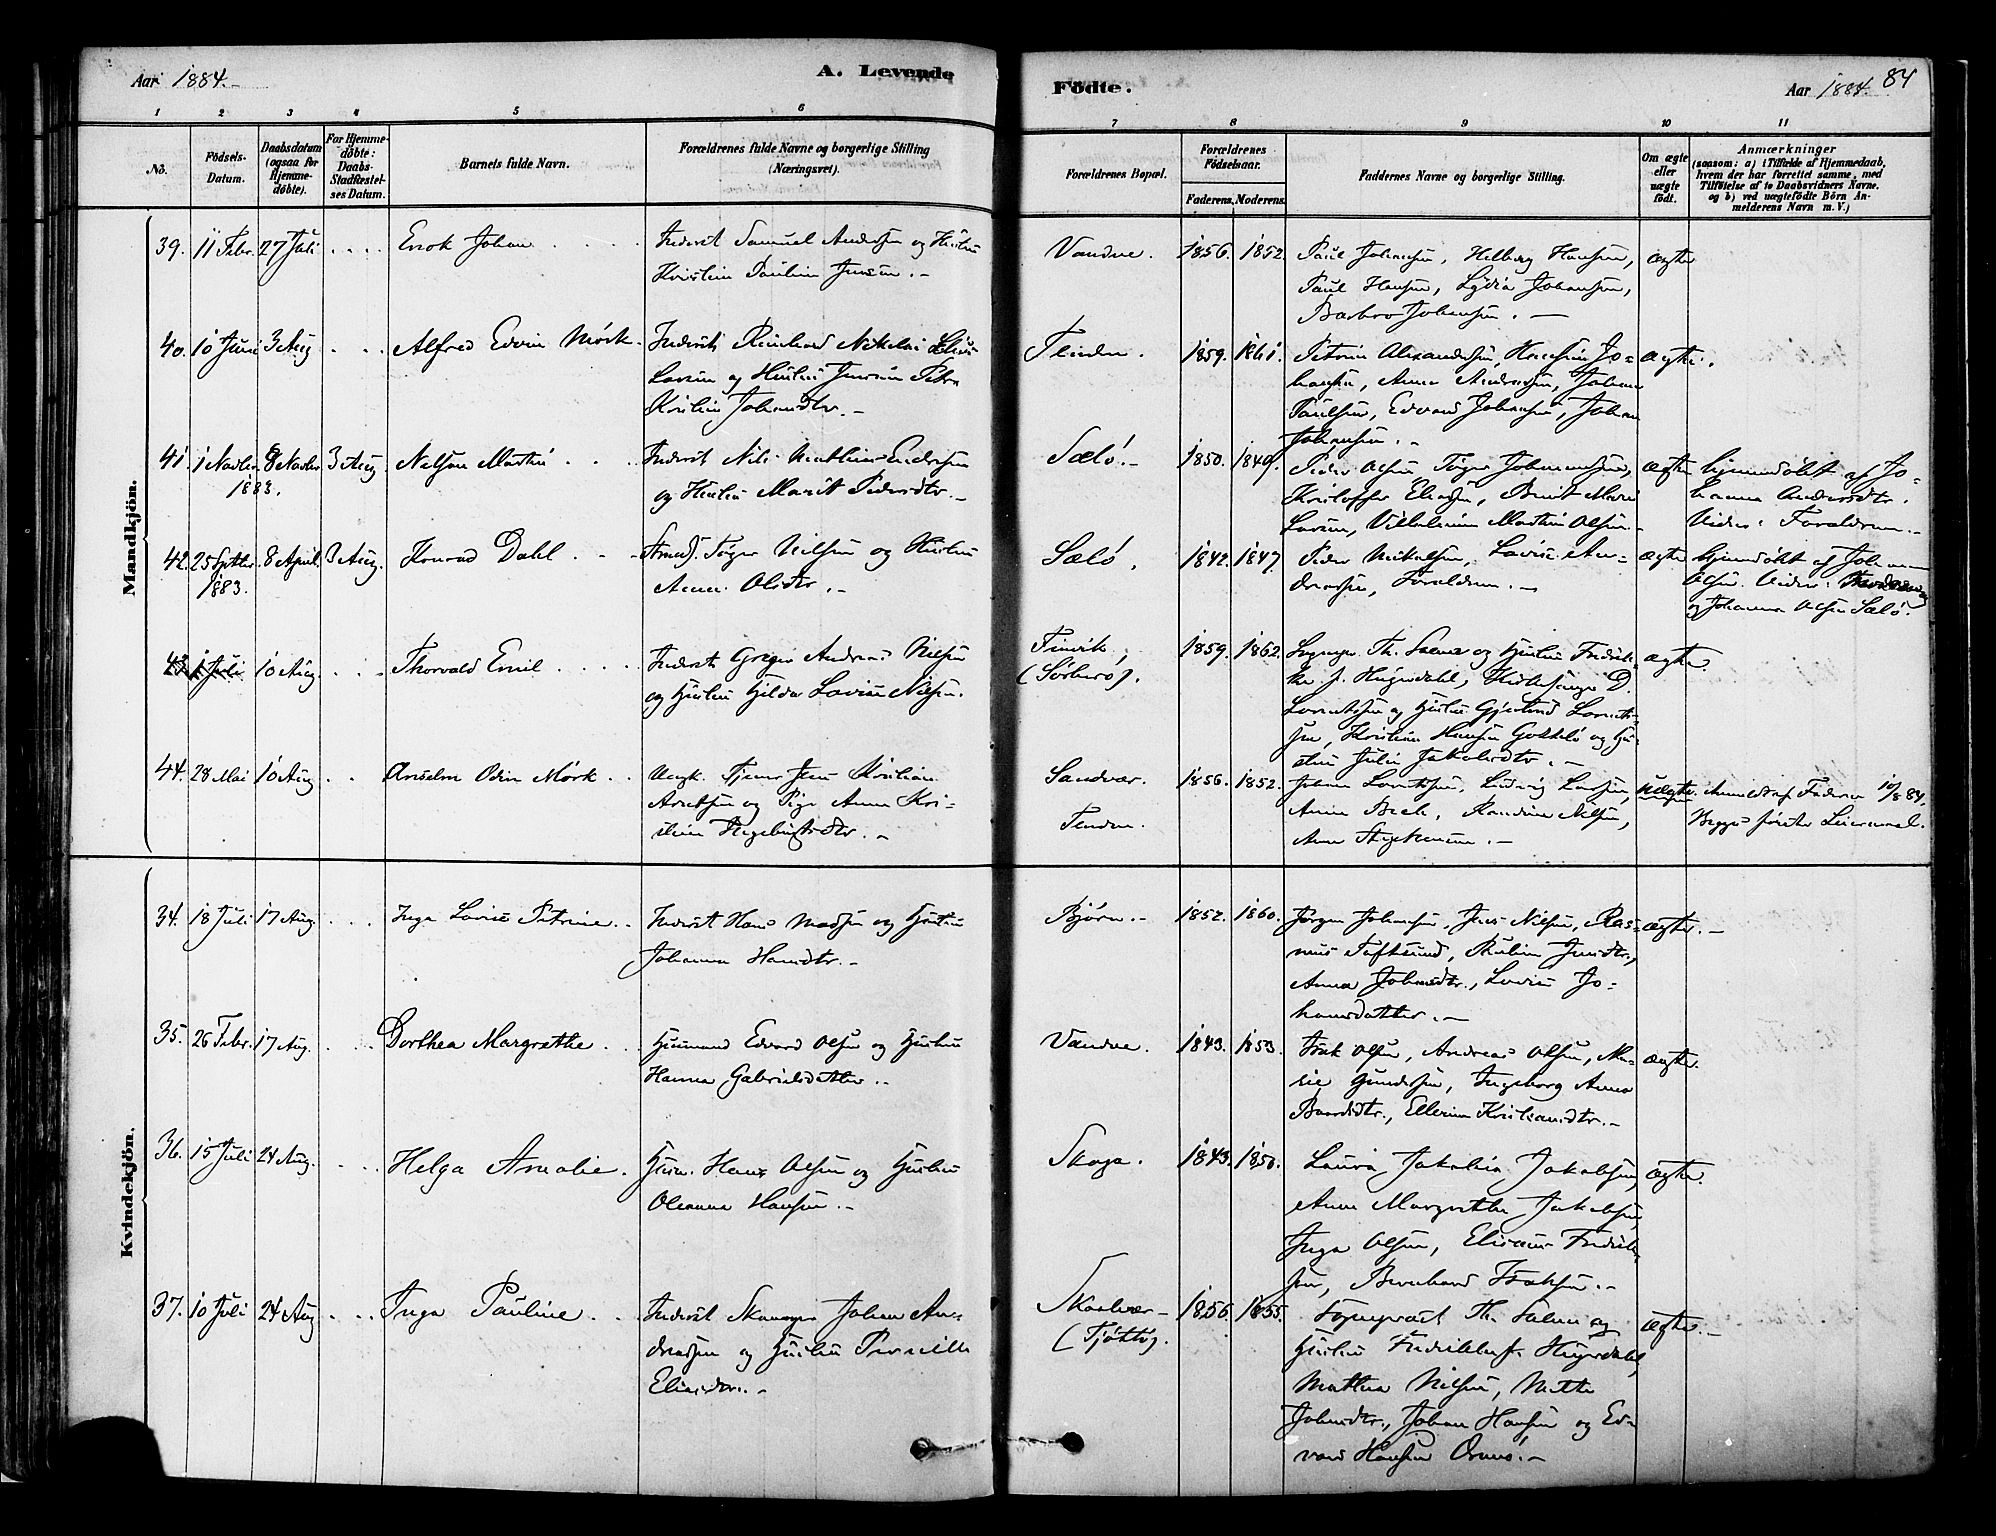 Aar 1884.
A. Levende
Födte.
Aar 1884.
84
1
2
3
4
5
6
7
8
9
10
11
No.
Födsels-
Datum.
Daabsdatum
(ogsaa for
Hjemme-
döbte).
For Hjemme-
döbte:
Daabs-
Stadfæstel-
ses Datum.
Barnets fulde Navn.
Forældrenes fulde Navne og borgerlige Stilling
(Næringsvei).
Forældrenes Bopæl.
Forældrenes
Födselsaar.
Faderens.
Moderens.
Faddernes Navne og borgerlige Stilling.
Om ægte
eller
uægte
födt.
Anmærkninger
(saasom: a) i Tilfælde af Hjemmedaab,
hvem der har forrettet samme, med
Tilföielse af to Daabsvidners Navne,
og b) ved uægtefödte Börn An-
melderens Navn m. V.)
Mandkjön.
39. 11 Febr. 27 Juli
Enok Johan
Inderst Samuel Andersen og Hustru
Kristine Pauline Jensen.
Vandve. 1856. 1852.
Paul Johansen, Helberg Hansen,
Paul Hansen, Lydia Johansen,
Barbro Johansen.
ægte
40. 10 Juni 3 Aug
Alfred Edvin Mörk
Inderst Reinhard Nikolai
Lorin og Hustru Jensine Petra
Kristine Johansdtr.
1859. 1861.
Petrine Alexandersen, Hansine Jo-
hansen, Anna Andersen, Johan
Paulsen, Edvard Johansen, Johan
Johansen.
ægte.
41. 1 Novbr 8 Novbr 3 Aug
1883.
Nelson Martin
Inderst Nils Mathias Endresen
og Hustru Marit Pedersdtr.
Sælö. 1850. 1840.
Peder Olsen, Töger Johannesen,
Kristoffer Eliassen, Berit Marie
Lorin, Vilhelmine Martine Olsen
ægte
hjemmedöbt af Jo-
hanna Andersdtr.
Vidner: Forældrene.
42. 25 Septbr 8 April 3 Aug.
1883.
Konrad Dahl
Töger Nilsen og Hustru
Anne Olsdtr.
Sælö. 1842. 1847
Peder Mikalsen, Lovise An-
dreassen, Forældrene.
ægte
hjemmedöbt af Johanna
Olsen. Vidner:
og Johanna Olsen Sælö.
43. 1 Juli 10 Aug
Thorvald Emil
Inderst Greger Andreas Nilsen
og Hustru Hilda Lovise Nilsen.
(Sörherö). 1859. 1862.
Sognepr. Th. Salme og Hustru Fredrik-
ke f. Hegerdahl, Kirkesanger D.
Lorentsen og Hustru Gjertrud Lorent-
sen, Kristian Hansen og Hu-
stru Julie Jakobsdtr.
ægte.
44. 28 Mai 10 Aug
Anselm Odin Mörk
Ungk. Tjener Jens Kristian
Arntsen og Pige Anne Kri-
stine Ingebrigtsdtr.
Sandvær.
1856. 1852.
Johan Lorentsen, Ludvig Larsen,
Anne Bech, Randine Nilsen,
Anne
uægte.
Anmeldt af Faderen 10/8 84.
Begges förste Leiermaal.
Kvindekjön.
34. 18 Juli 17 Aug.
Inga Lovise Petrine
Inderst Hans Madsen og Hustru
Johanna Hansdtr.
Björn. 1852. 1860.
Jörgen Johansen, Jens Nilsen, Ras-
mus Toftsund, Pauline Jensdtr.,
Anna Johansdtr., Lovise Jo-
hansdatter.
ægte.
35. 26 Febr. 17 Aug.
Dorthea Margrethe
Husmand Edvard Olsen og Hustru
Hanna Gabrielsdatter.
Vandve. 1843. 1853.
Isak Olsen, Andreas Olsen, Ma-
rie Gundersen, Ingeborg Anna
Baardsdtr., Ellerine Kristiansdtr.
ægte.
36. 15 Juli 24 Aug.
Helga Amalie.
Husm. Hans Olsen og Hustru
Oleanna Hansen.
Skaga. 1843. 1850.
Laura Jakobia Jakobsen,
Anna Margrethe Jakobsen
Inga Olsen, Fredrik-
sen, Bernhard Isaksen.
ægte.
37. 10 Juli 24 Aug
Inga Pauline
Inderst Johan An-
dreassen og Hustru Pernille
Eliasdtr.
(Tjöttö). 1856. 1855.
Sogneprest Th. Salme og
Hustru Fredrikke f. Hegerdahl,
Mathea Nilsen, Mette
Johansdtr., Johan Hansen og Ed-
vard Hansen
ægte.